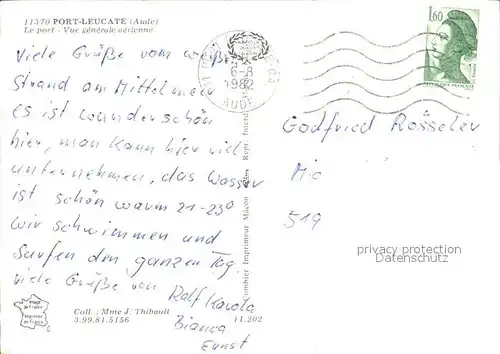 11370 PORT-LEUCATE (Aude)
Le port - Vue générale aérienne
1,60
6-8
1982
AUDE
REPUBLIQUE FRANÇAISE
viele Grüße vom
Strand am Mittelmeer
es ist wunderschön
hier, man kann hier viel
unternehmen, das Wasser
ist schön warm 21-23°
wir schwimmen und
surfen den ganzen Tag.
viele Grüße von
Ralf Karola
Bianca
Ernst
Godfried Rösseler
519
privacy protection
Datenschutz
Combier Imprimeur Mâcon
Image
de France
Imprimée
en France
Coll : Mme J. Thibault
3.99.81.5156
11.202